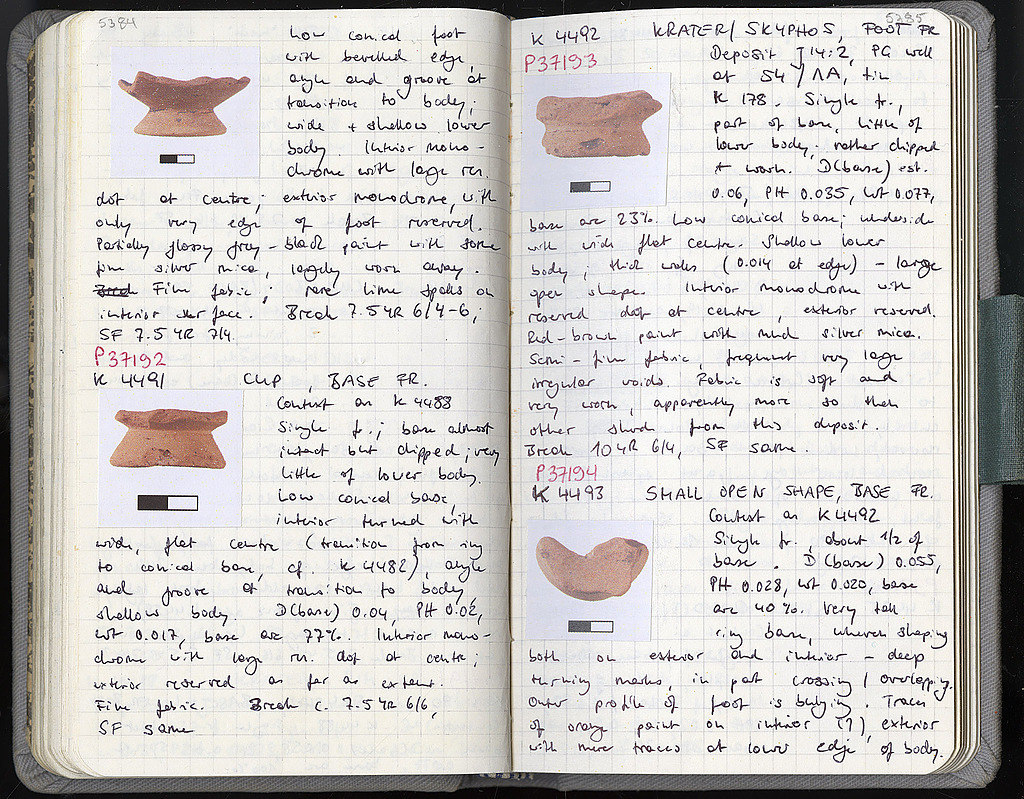 5384
Low conical foot
with bevelled edge,
angle and groove at
transition to body;
wide + shallow lower
body. Interior mono-
chrome with large res.
dot at centre; exterior monochrome, with
only very edge of foot reserved.
Partially glossy gray-black paint with some
fine silver mica, largely worn away.
Fine fabric; rare lime spalls on
interior surface. Break 7.5YR 6/4-6,
SF 7.5YR 7/4.
P37192
K 4491 CUP, BASE FR.
Context as K 4488
Single fr.; base almost
intact but chipped; very
little of lower body.
Low conical base,
interior turned with
wide, flat centre (transition from ring
to conical base, cf. K 4482), angle
and groove at transition to body,
shallow body. D(base) 0.04, PH 0.02,
wt 0.017, base arc 77%. Interior mono-
chrome with large res. dot at centre;
exterior reserved as far as extant.
Fine fabric. Break c. 7.5YR 6/6,
SF same
5385
K 4492 KRATER/SKYPHOS, FOOT FR
P37193
Deposit J 14:2, PG well
at 54/ΛΑ, tin
K 178. Single fr.,
part of base, little of
lower body; rather chipped
+ worn. D(base) est.
0.06, PH 0.035, wt 0.077,
base arc 23%. Low conical base; underside
with wide flat centre. Shallow lower
body; thick walls (0.014 at edge) – large
open shape. Interior monochrome with
reserved dot at centre, exterior reserved.
Red-brown paint with much silver mica.
Semi-fine fabric, frequent very large
irregular voids. Fabric is soft and
very worn, apparently more so than
other sherds from this deposit.
Break 10YR 6/4, SF same.
P37194
K 4493 SMALL OPEN SHAPE, BASE FR.
Context as K 4492
Single fr., about 1/2 of
base. D(base) 0.055,
PH 0.028, wt 0.020, base
arc 40%. Very tall
ring base, uneven shaping
both on exterior and interior – deep
turning marks, in part crossing/overlapping.
Outer profile of foot is bulging. Traces
of orange paint on interior (?), exterior
with more traces at lower edge of body.